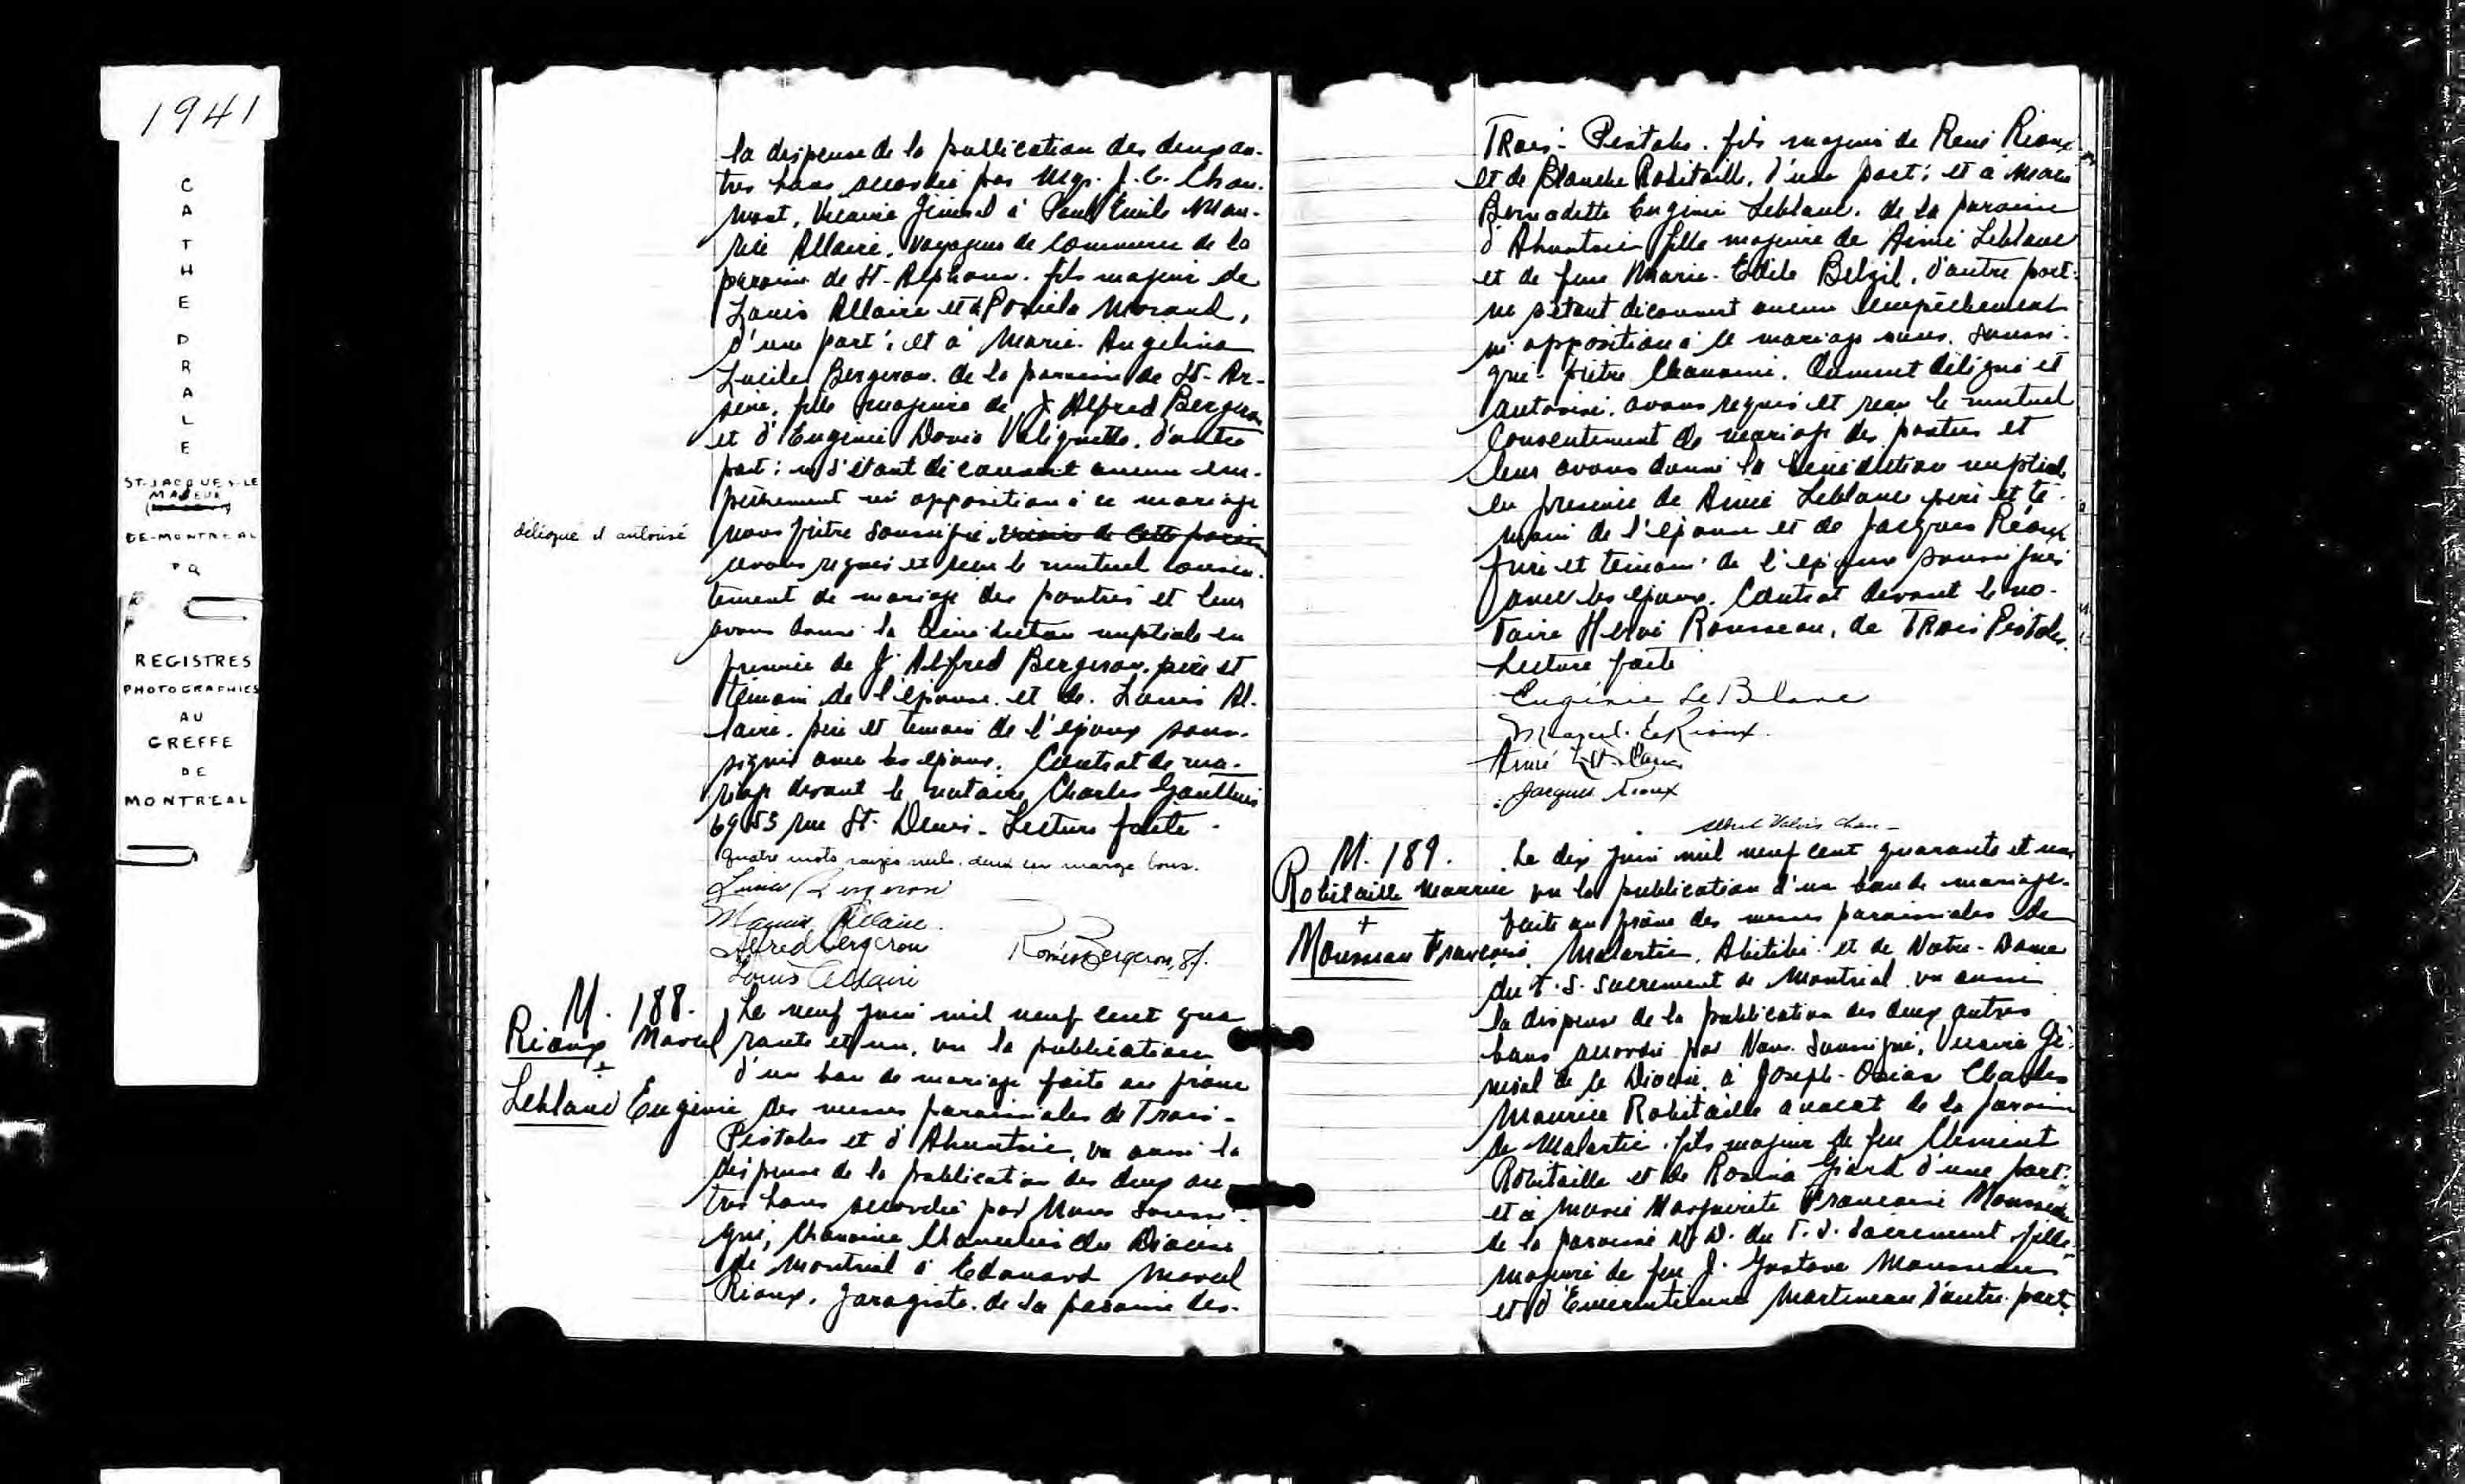 1941
CATHEDRALE
ST-JACQUES-LE
MAJEUR
DE-MONTREAL
PQ
REGISTRES
PHOTOGRAPHIES
AU
GREFFE
DE
MONTREAL
la dispense de la publication des deux au-
tres bans accordée par Mgr. J. C. Chau-
mont, Vicaire Général à Paul Emile Mau-
rice Allaire, voyageur de commerce de la
paroisse de St-Alphonse. fils majeur de
Louis Allaire et de Morand,
d'une part; et à Marie Angelina
Lucile Bergeron de la paroisse de St-Ar-
sène, fille majeure de J. Alfred Bergeron
et d'Eugénie Valiquette, d'autre
part: ne s'étant découvert aucun em-
pêchement ni opposition à ce mariage
délégué et autorisé
nous prêtre soussigné vicaire de cette paroisse
avons requis et reçu le mutuel consen-
tement de mariage des parties et leur
avons donné la bénédiction nuptiale en
présence de J. Alfred Bergeron, père et
témoin de l'épouse et de Louis Al-
laire, père et témoin de l'époux sous-
signés avec les époux. Contrat de ma-
riage devant le notaire Charles Gauthier
6953 rue St. Denis. Lecture faite.
Quatre mots rayés nuls. deux en marge bons.
Bergeron
Maurice Allaire
Alfred Bergeron
Roméo Bergeron,
Louis Allaire
M. 188.
Rioux Marcel
+
Leblanc Eugénie
Le neuf juin mil neuf cent qua
rante et un, vu la publication
d'un ban de mariage faite au prône
des messes paroissiales de Trois-
Pistoles et d'Ahuntsic, vu aussi la
dispense de la publication des deux au-
tres bans accordée par Nous soussi-
gné, Chanoine Chancelier du Diocèse
de Montréal à Edouard Marcel
Rioux, garagiste de la paroisse des-
TRois-Pistoles. fils majeur de René Rioux
et de Blanche Robitaille, d'une part; et à Marie
Bernadette Eugénie Leblanc, de la paroisse
d'Ahuntsic fille majeure de Aimé Leblanc
et de feue Marie Belzil, d'autre part:
ne s'étant découvert aucun empêchement
ni opposition à ce mariage nous, soussi-
gné prêtre Chanoine, dûment délégué et
autorisé, avons requis et reçu le mutuel
consentement de mariage des parties et
leur avons donné la bénédiction nuptiale
en présence de Aimé Leblanc père et té-
moin de l'épouse et de Jacques Rioux
frère et témoin de l'époux soussignés
avec les époux. Contrat devant le no-
taire Hervé Rousseau, de TRois Pistoles.
Lecture faite
Eugénie LeBlanc
Marcel E. Rioux
Aimé
Jacques Rioux
Albert Valois chan-
M. 189.
Robitaille Maurice
+
Mousseau Françoise
Le dix juin mil neuf cent quarante et un
vu la publication d'un ban de mariage
faite au prône des messes paroissiales de
Malartic, Abitibi et de Notre-Dame
du T. S. Sacrement de Montréal vu aussi
la dispense de la publication des deux autres
bans accordée par Nous soussigné, Vicaire Gé-
néral de ce Diocèse, à Joseph- Charles
Maurice Robitaille avocat de la paroisse
de Malartic, fils majeur de feu Clément
Robitaille et de Rosina Giard d'une part:
et à Marie Marguerite Françoise Mousseau
de la paroisse N. D. du T. S. Sacrement fille
majeure de feu J. Gustave Mousseau
et d'Emérentienne Martineau d'autre part,